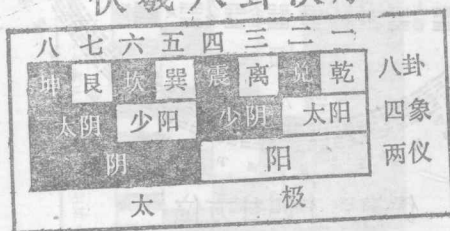 伏羲八卦次序
八 七 六 五 四 三 二 一
坤 艮 坎 巽 震 离 兑 乾 八卦
太阴 少阳 少阴 太阳 四象
阴 阳 两仪
太 极